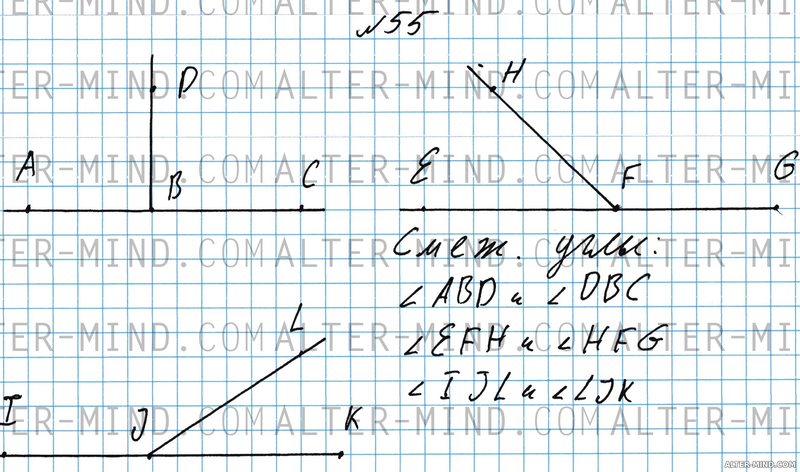 №55
D
H
A
B
C
E
F
G
Смеж. углы:
∠ABD и ∠DBC
∠EFH и ∠HFG
∠IJL и ∠LJK
L
I
J
K
ALTER-MIND.COM